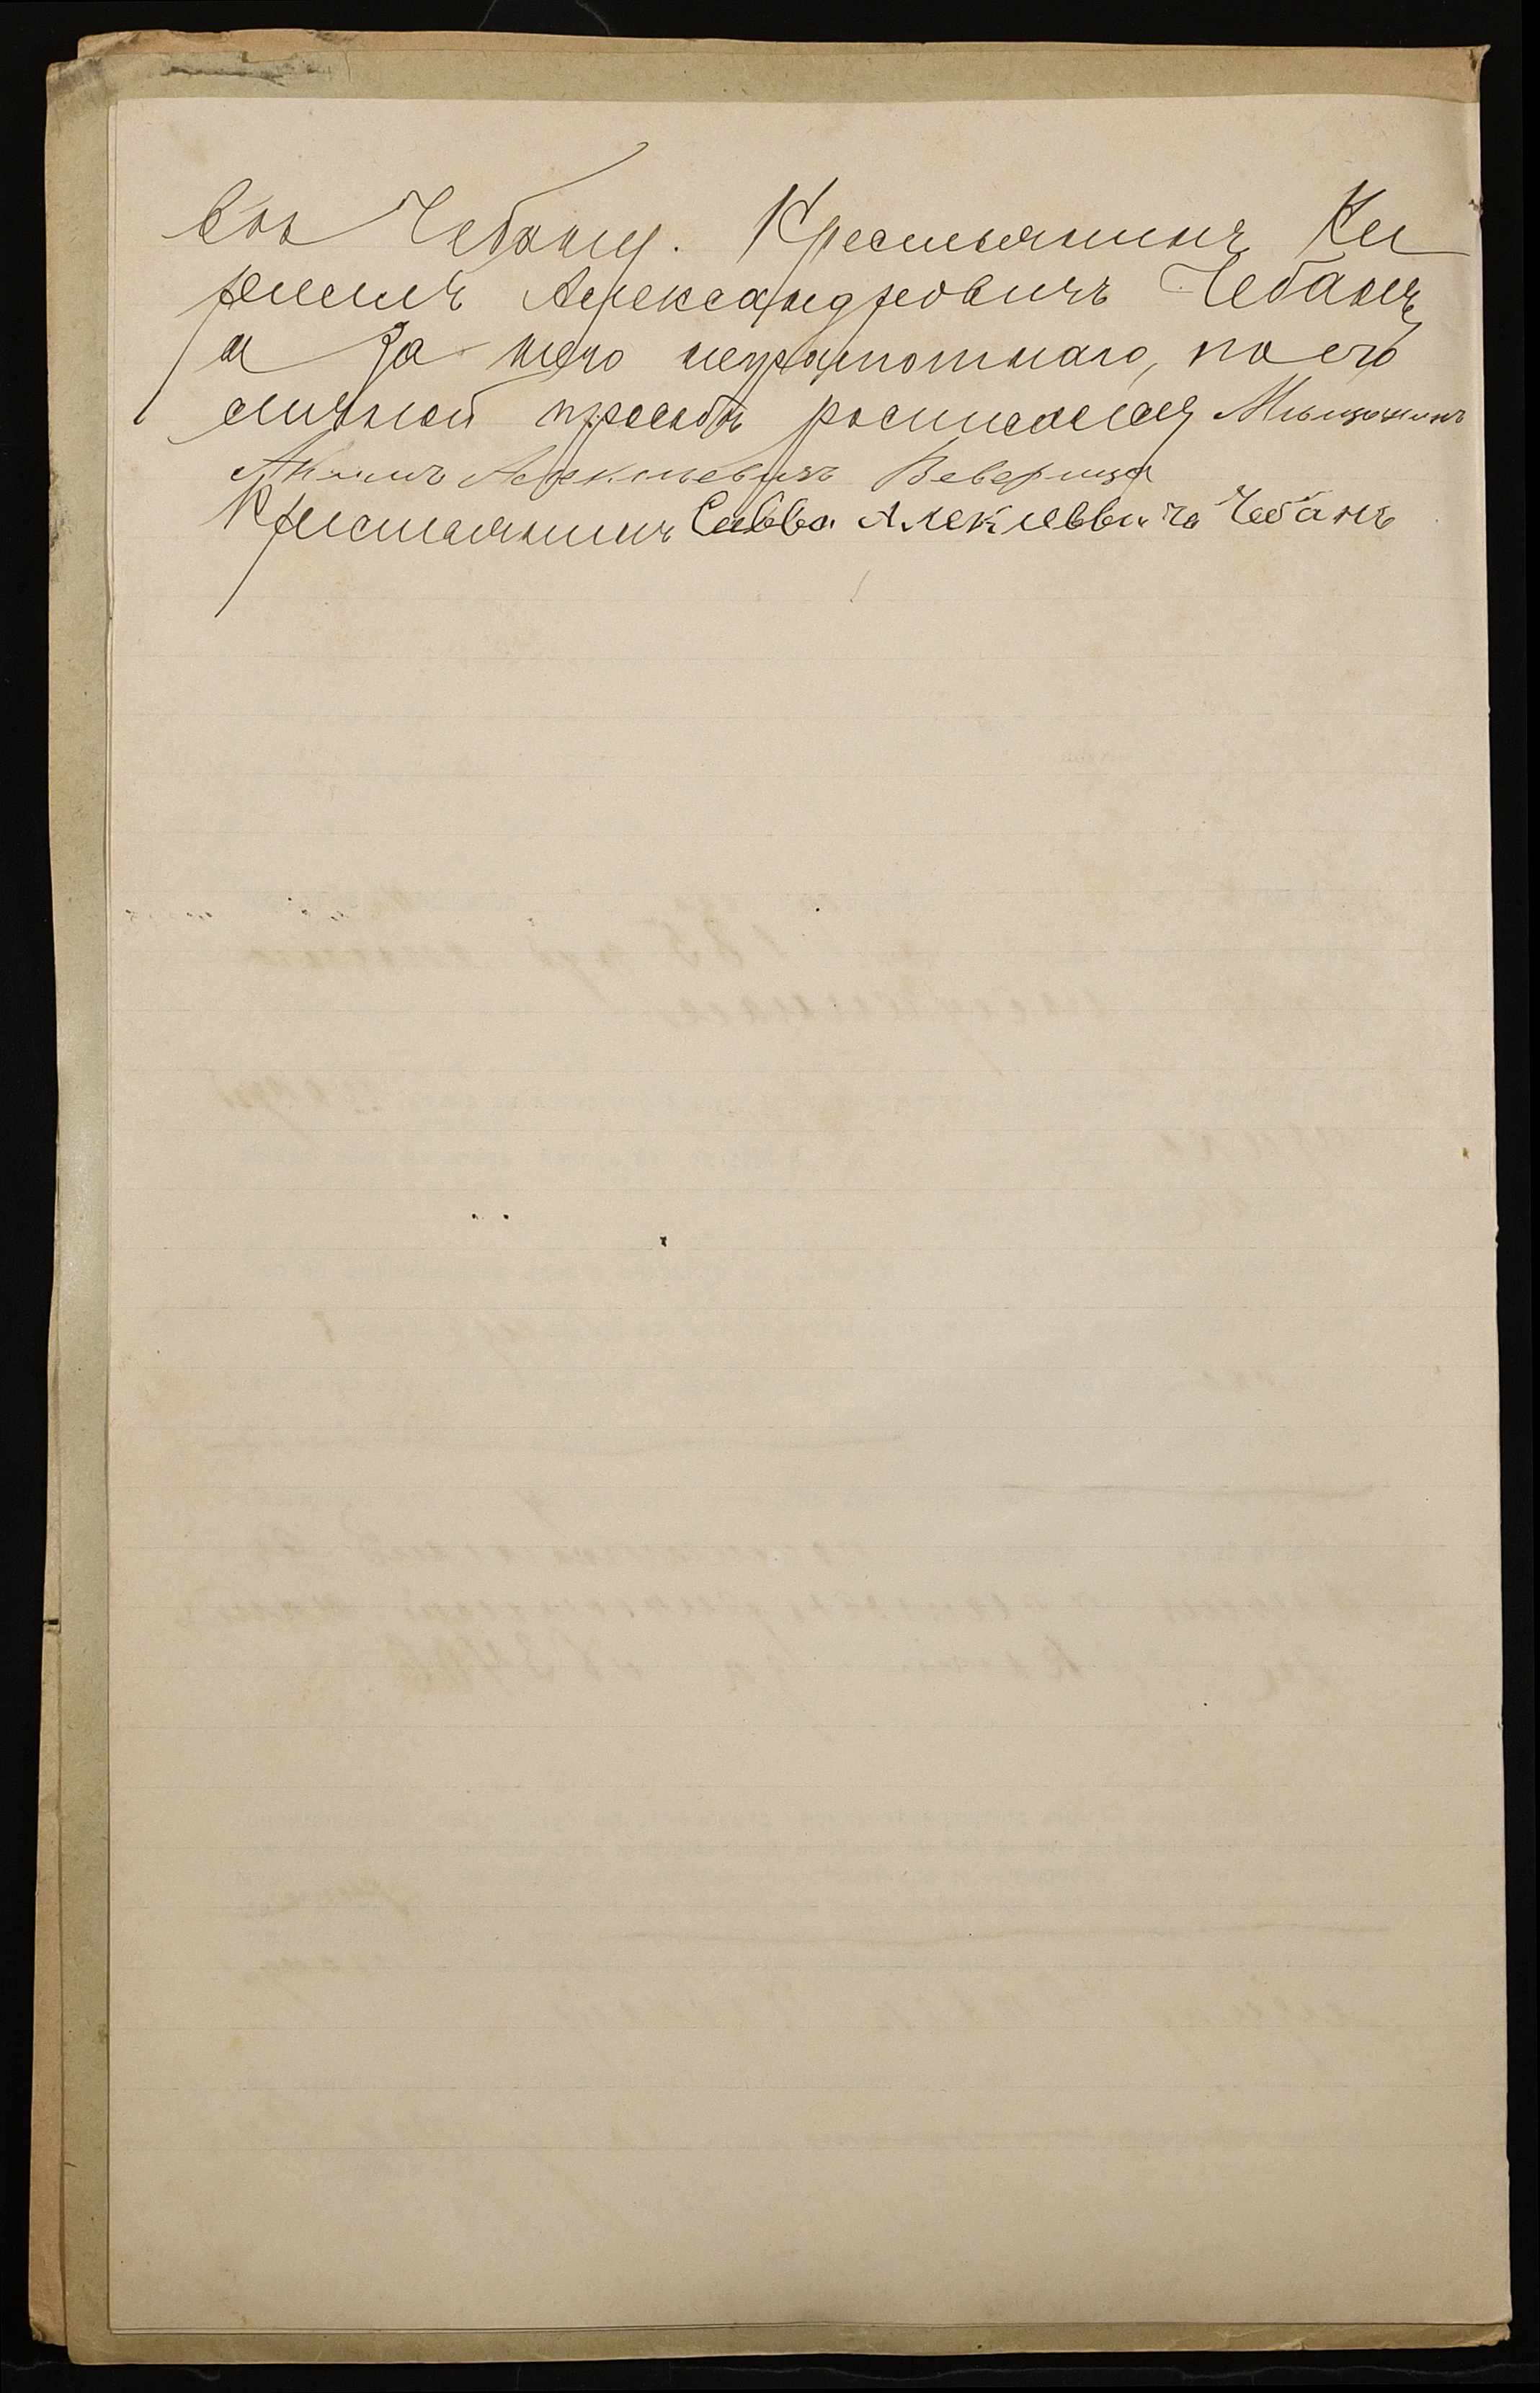 вы Чебану. Крестьянинъ Ки
риллъ Александровичъ Чебанъ
а за него неграмотнаго, по его
личной просьбѣ росписался Мѣщанинъ
Веверица
Крестьянинъ Савва Алекиеввича Чебанъ